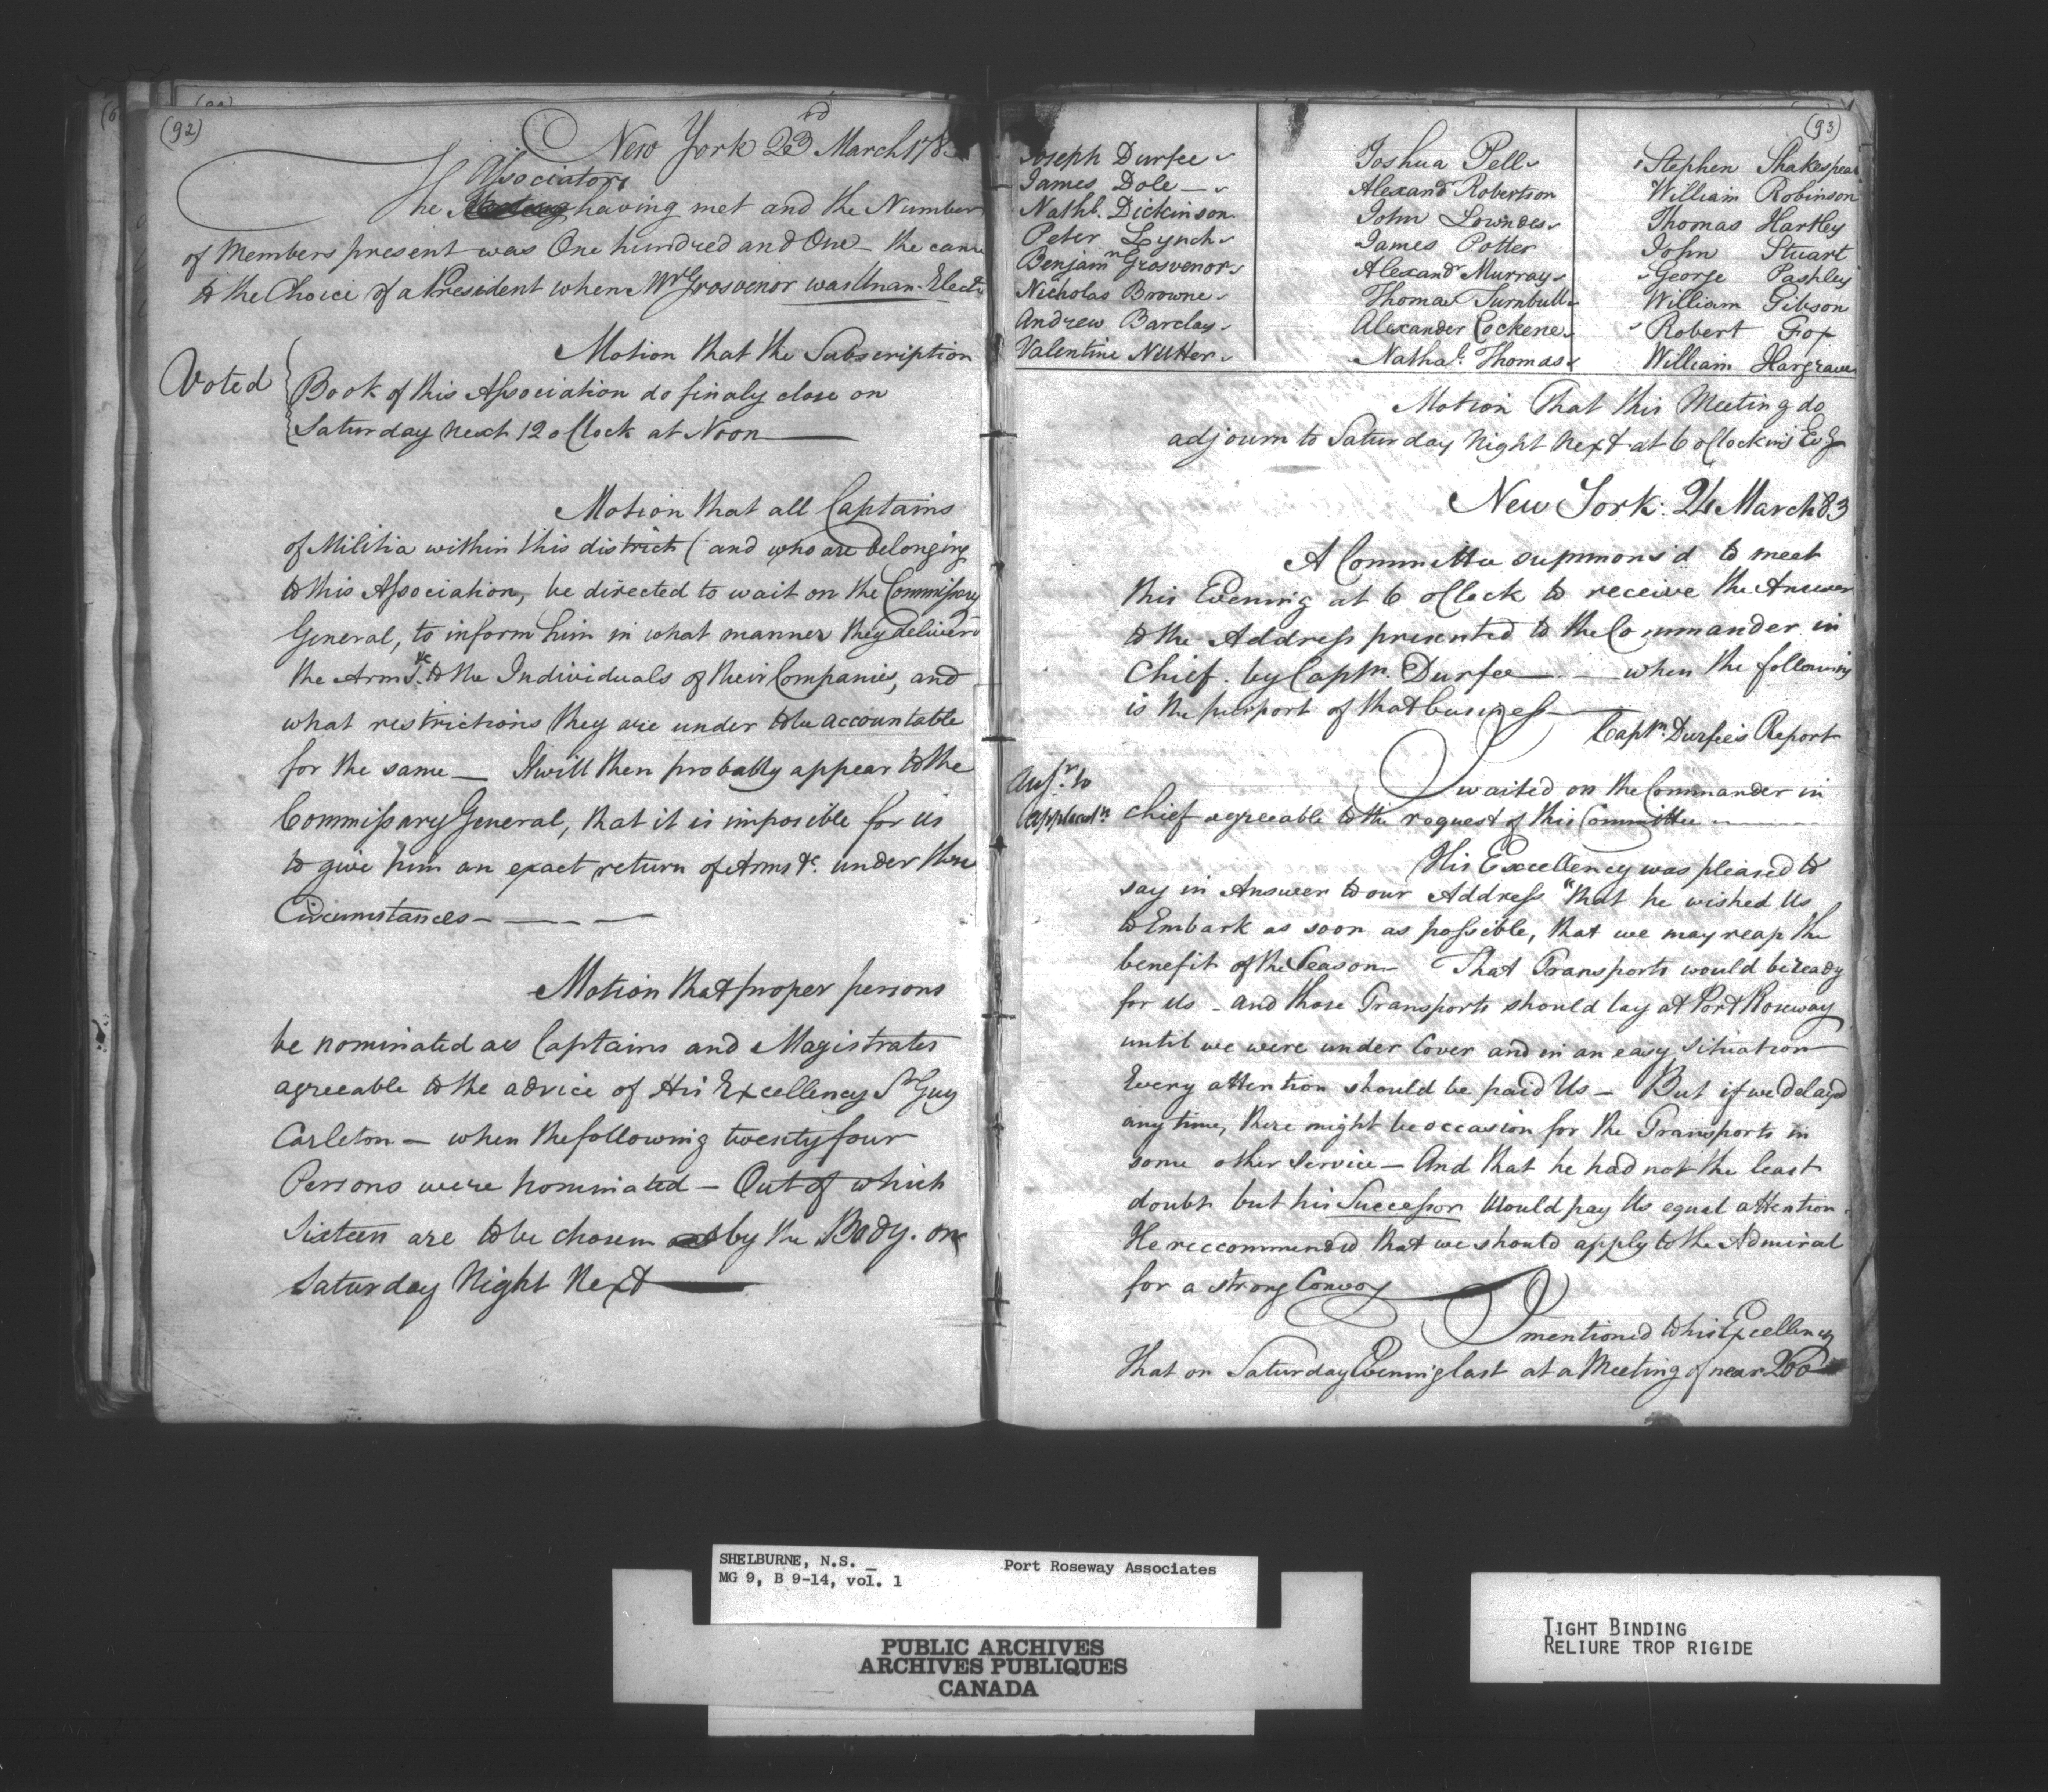 (92)
New York 23rd March 178
Associators
The having met and the Number
of Members present was One hundred and One - the came
to the Choice of a President when Mr Grosvenor was Unan. Elect'd
Voted
Motion that the Subscription
Book of this Association do finaly close on
Saturday next 12 oClock at Noon —
Motion that all Captains
of Militia within this district (and who are belonging
to this Association, be directed to wait on the Commissary
General, to inform him in what manner they deliver'd
the Arms &c to the Individuals of their Companies, and
what restrictions they are under to be accountable
for the same — It will then probably appear to the
Commissary General, that it is imposible for us
to give him an exact return of Arms &c. under these
Circumstances — — — —
Motion that proper persons
be nominated as Captains and Magistrates
agreeable to the advice of His Excellency Sr Guy
Carleton — when the following twenty four
Persons were nominated — Out of which
Sixteen are to be chosen by the Body. on
Saturday Night Next —
(93)
Joseph Durfee Joshua Pell Stephen Shakespear
James Dole — Alexandr Robertson William Robinson
Nathl. Dickinson John Lowndes Thomas Hartley
Peter Lynch James Potter John Stuart
Benjamn Grosvenor Alexandr Murray George Pashley
Nicholas Browne Thomas Turnbull William Gibson
Andrew Barclay Alexander Cockene Robert Fox
Valentine Nutter Nathal. Thomas William Hargrave
Motion That this Meeting do
adjourn to Saturday Night Next at 6 oClock in's Ev'g
New York. 24 March 83
A Committee summons'd to meet
this Evening at 6 oClock to receive the Answer
to the Address presented to the Commander in
Chief. by Captn. Durfee — - when the following
is the purport of that business —
Captn. Durfee's Report
I waited on the Commander in
Ansr. to
applicatn
Chief agreeable to the request of this Committee - — —
His Excellency was pleased to
say in Answer to our Address "that he wished Us
to Embark as soon as possible, that we may reap the
benefit of the Season — That Transports would be ready
for us - and those Transports should lay at Port Roseway
until we were under Cover and in an easy Situation
Every attention should be paid Us — But if we delay'd
any time, there might be occasion for the Transports in
some other Service — And that he had not the least
doubt but his Successor Would pay Us equal attention.
He reccommended that we should apply to the Admiral
for a strong Convoy —
I mentioned to his Excellency
That on Saturday Evening last at a Meeting of near 200
SHELBURNE, N.S. _ Port Roseway Associates
MG 9, B 9-14, vol. 1
PUBLIC ARCHIVES
ARCHIVES PUBLIQUES
CANADA
TIGHT BINDING
RELIURE TROP RIGIDE